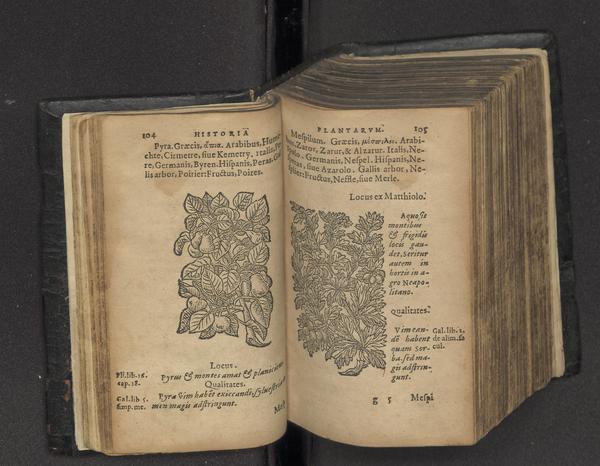 104 HISTORIA
Pyra. Græcis, ἄπια. Arabibus, Humec
chte, Cirmetre, siue Kemetry, Italis, Pe
re, Germanis, Byren. Hispanis, Peras. Gal
lis arbor, Poirier: Fructus, Poires.
Locus.
Pli. lib. 16. cap. 18.
Pyrus & montes amat & planiciem
Qualitates.
Gal. lib. 6. simp. me.
Pyra vim habẽt exiccandi, syluestria
men magis adstringunt.
PLANTARVM. 105
Mespilum. Græcis, μέσπιλον. Arabi-
Zaror, Zarur, & Alzarur. Italis, Ne-
Germanis, Nespel. Hispanis, Ne-
siue Azarolo. Gallis arbor, Ne-
Fructus, Neffle, siue Merle.
Locus ex Matthiolo.
Aquosis
montibus
& frigidis
locis gau-
det, Seritur
autem in
hortis in a-
gro Neapo-
litano.
Qualitates.
Vim ean-
dẽ habent
quam Sor-
ba, sed ma-
gis adstrin-
gunt.
Gal. lib. 2.
de alim. fa
cul.
g 5 Mespi